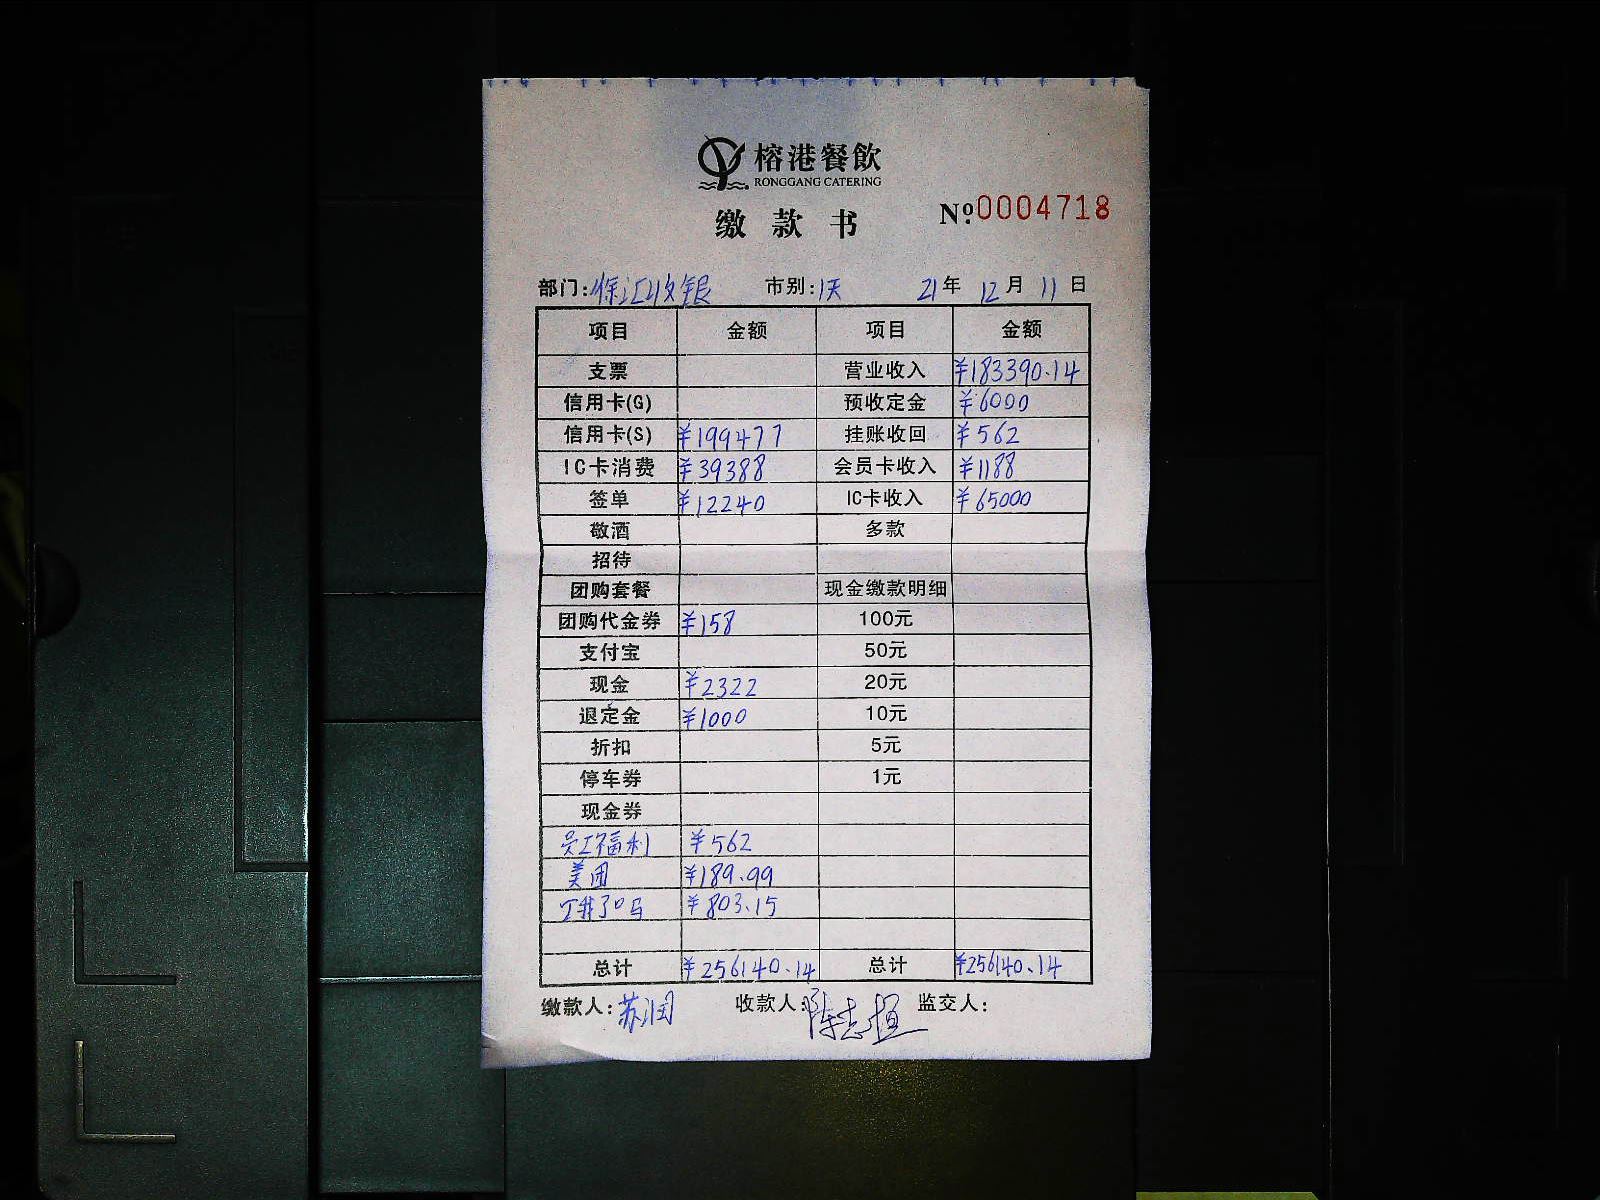 榕港餐飲
RONGGANG CATERING
缴款书
№:0004718
部门:徐汇收银 市别:1天 21年 12月 11日
项目 金额 项目 金额
支票 营业收入 ¥183390.14
信用卡(G) 预收定金 ¥6000
信用卡(S) ¥199477 挂账收回 ¥562
IC卡消费 ¥39388 会员卡收入 ¥1188
签单 ¥12240 IC卡收入 ¥65000
敬酒 多款
招待
团购套餐 现金缴款明细
团购代金券 ¥158 100元
支付宝 50元
现金 ¥2322 20元
退定金 ¥1000 10元
折扣 5元
停车券 1元
现金券
员工福利 ¥562
美团 ¥189.99
¥803.15
总计 ¥256140.14 总计 ¥256140.14
缴款人:苏润 收款人:陈志恒 监交人: